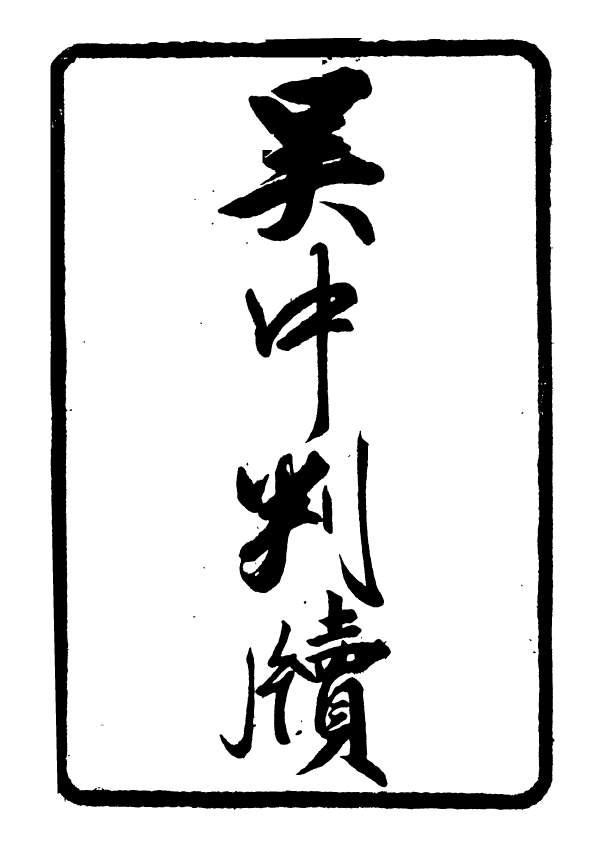 吳中判牘